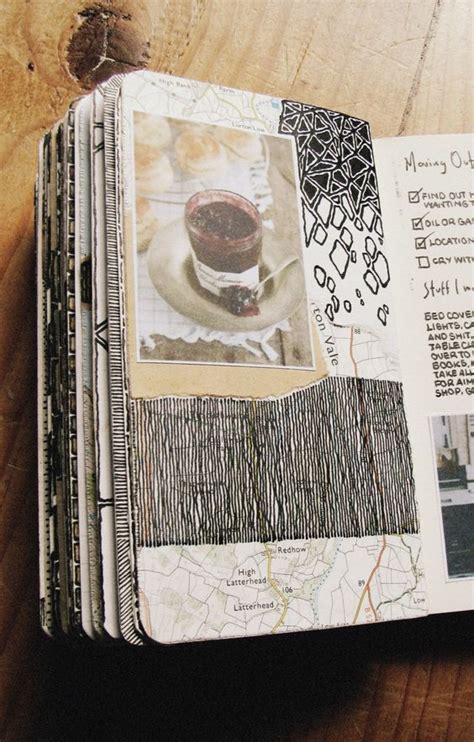 High Bank
Farm
Lorton Low
ton Vale
Redhow
High
Latterhead
106
Latterhead
Moving Out
FIND OUT
WANTING T
OIL OR GA
LOCATION
CRY WITH
Stuff I
BED COVE
LIGHTS, CA
AND SHIT
TABLE, CL
OVER TO
BOOKS,
TAKE ALL
FOR A
SHOP. G